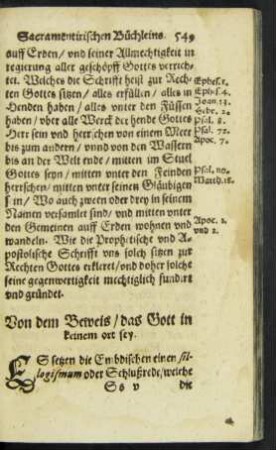 Sacramentirischen Büchleins. 549
auff Erden/ vnd seiner Allmechtigkeit in
regierung aller geschöpff Gottes verrich-
tet. Welches die Schrifft heist zur Rech-
ten Gottes sitzen/ alles erfüllen/ alles in
Henden haben/ alles vnter den Füssen
haben/ vber alle Werck der hende Gottes
Herr sein vnd herrschen von einem Meer
bis zum andern/ vnnd von den Wassern
bis an der Welt ende/ mitten im Stuel
Gottes seyn/ mitten vnter den Feinden
herrschen/ mitten vnter seinen Gläubigen
sein/ Wo auch zween oder drey in seinem
Namen versamlet sind/ vnd mitten vnter
den Gemeinen auff Erden wohnen vnd
wandeln. Wie die Prophetische vnd A-
postolische Schrifft vns solch sitzen zur
Rechten Gottes erkleret/ vnd doher solche
seine gegenwertigkeit mechtiglich fundirt
vnd gründet.
Ephes.1.
Ephes.4.
Joan.13.
Hebr.2.
Psal.8.
Psal.72.
Apoc.7.
Psal.110.
Matth.18.
Apoc. 1.
vnd 2.
Von dem Beweis/ das Gott in
keinem ort sey.
ES setzen die Embdischen einen sil-
logismum oder Schlußrede/ welche
die